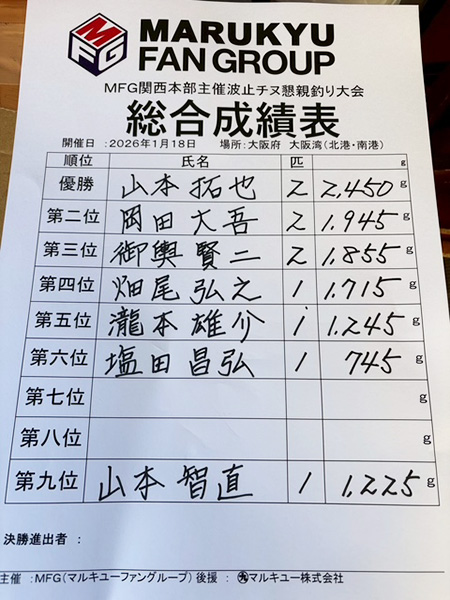 MFG
MARUKYU
FAN GROUP
MFG関西本部主催波止チヌ懇親釣り大会
総合成績表
開催日 :2026年1月18日 場所:大阪府 大阪湾(北港・南港)
順位 氏名 匹 g
優勝 山本拓也 2 2,450 g
第二位 岡田大吾 2 1,945 g
第三位 御輿賢二 2 1,855 g
第四位 畑尾弘之 1 1,715 g
第五位 瀧本雄介 1 1,245 g
第六位 塩田昌弘 1 745 g
第七位 g
第八位 g
第九位 山本智直 1 1,225 g
決勝進出者 :
主催 :MFG(マルキユーファングループ) 後援 : 九マルキユー株式会社